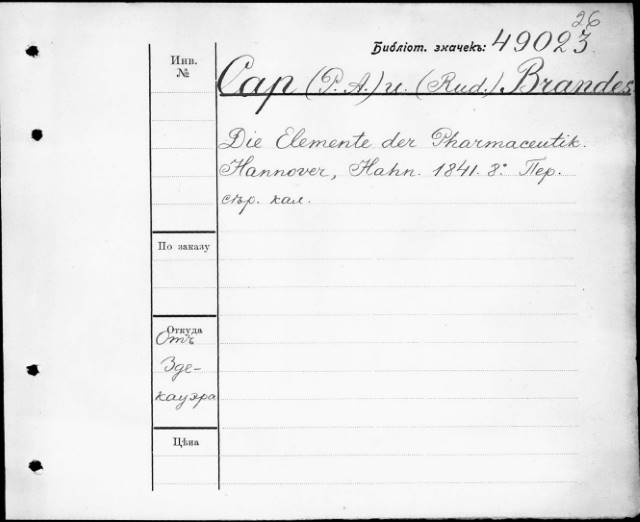 26
Библіот. значекъ: 49023.
Инв.
№
Cap (P. A.) u. (Rud.) Brandes.
Die Elemente der Pharmaceutik.
Hannover, Hahn. 1841. 8º Пер.
сѣр. кал.
По заказу
Откуда
Отъ
Зде-
кауэра
Цѣна